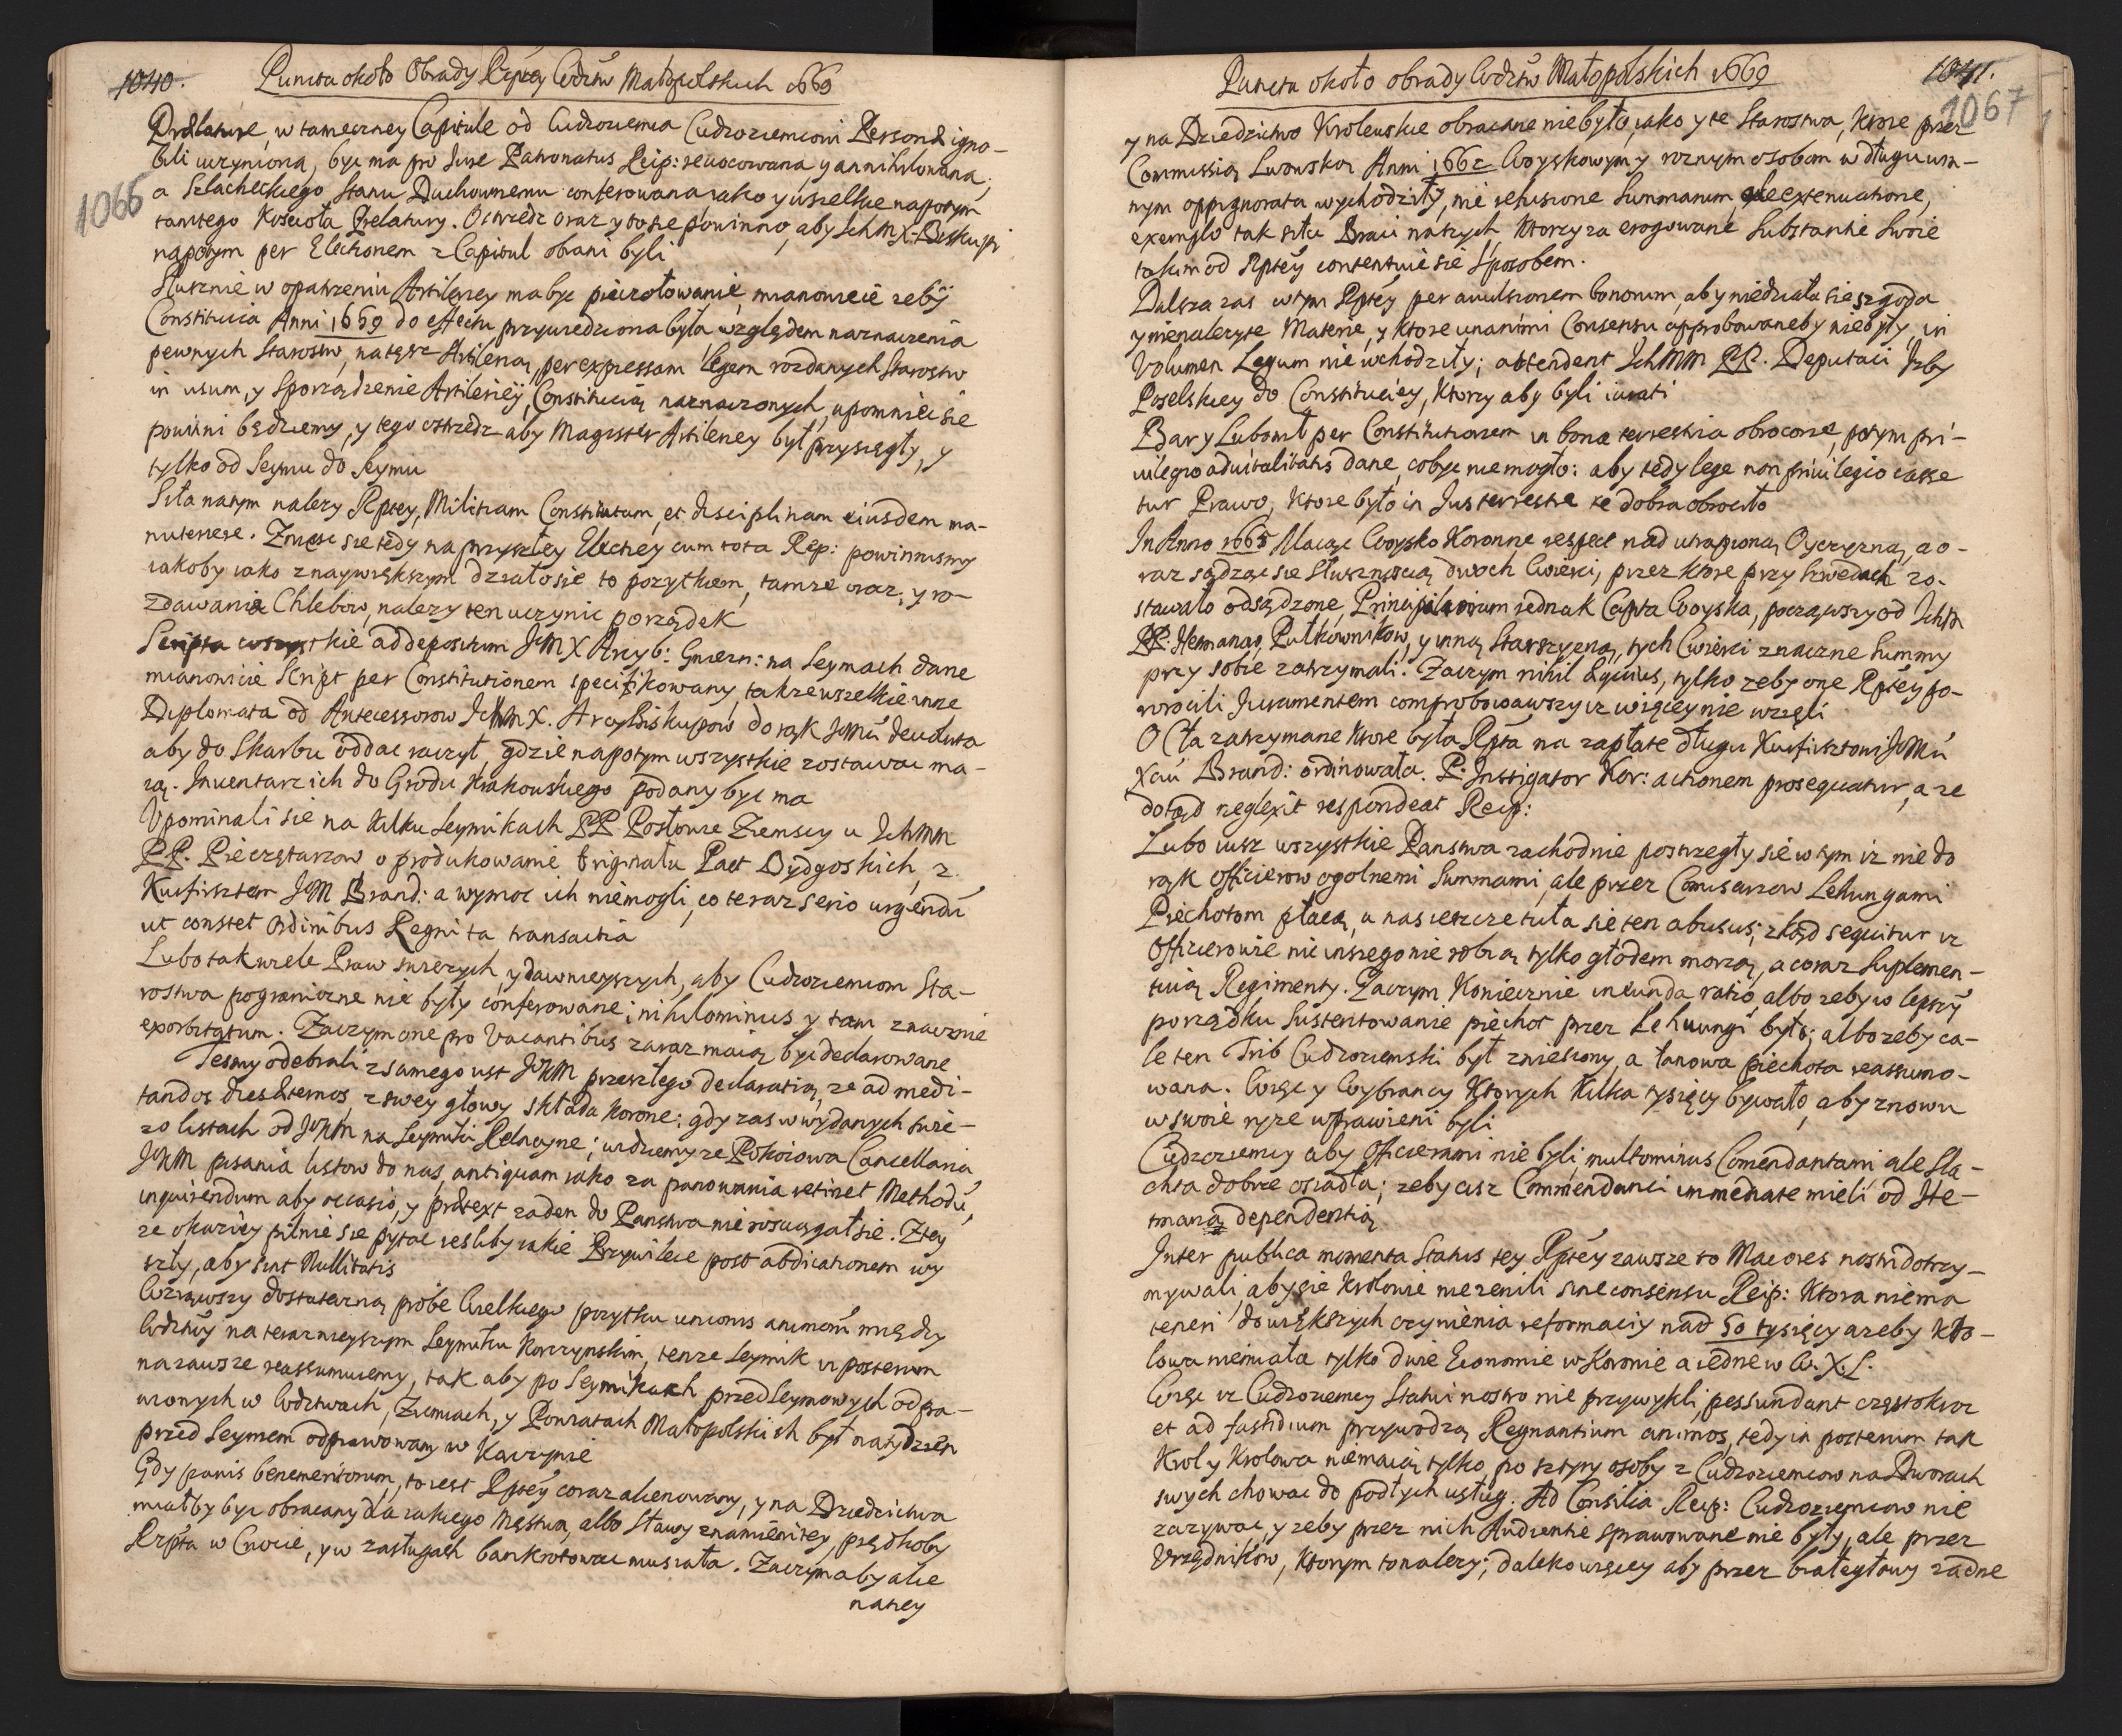 1040. Puncta około Obrady Rptey Wdztw Małopolskich 1669
1066
Prælaturę w tameczney Capitule od Cudzoziemca Cudzoziemcowi Personæ igno-
bili uczyniona, byc ma pro Jure Patronatus Reip: reuocowana, y annihilowana,
a Szlacheckiego Stanu Duchownemu conferowana, iako y wszelkie napotym
tamtego Kościoła Prelatury. Ostrzedz oraz y to sie powinno, aby IchM X. Biskupi
napotym per Electionem z Capituł obrani byli
Słusznie w opatrzeniu Artileriey ma byc pieczołowanie, mianowicie zeby
Constitucia Anni 1659 do effectu przywiedziona była względem naznaczenia
pewnych Starostw, na tęsz Artilerią, per expressam legem rozdanych Starostw
in usum, y sporządzenie Artileriey, Constitucią naznaczonych, upomniec sie
powinni będziemy, y tego ostrzedz aby Magister Artileriey był przysięgły, y
tylko od Seymu do Seymu
Siła natym nalezy Rptey, Militiam Constitutam, et disciplinam eiusdem ma-
nutenere. Zniesc sie tedy na przyszłey Elekcyey cum tota Rep: powinnismy
iakoby iako z naywiększym działosie to pozytkiem, tamze oraz, y ro-
zdawania Chlebow, nalezy ten uczynic porządek
Scripta wszystkie ad depositum JeM X Arcyb: Gniezn: na Seymach dane
mianowicie Script per Constitutionem specifikowany, takze wszelkie inne
Diplomata od Antecessorow IchM X. Arcybiskupow do rąk JeMu deuoluta
aby do Skarbu oddac raczył, gdzie napotym wszystkie zostawac ma-
ią. Inuentarz ich do Grodu Krakowskiego podany byc ma
Vpominali sie na kilku Seymikach PP Posłowie Ziemscy u IchMM
PP. Pieczętarzow o produkowanie Originału Pact Bydgoskich, z
Kurfirsztem JeM Brand: a wymoc ich niemogli, co teraz serio urgendū
ut constet Ordinibus Regni ta transactia
Lubo tak wiele Praw swiezych, y dawnieyszych, aby Cudzoziemcom Sta-
rostwa pograniczne nie były conferowane; nihilominus y tam znacznie
exorbitatum. Zaczym one pro Vacantibus zaraz maią byc declarowane
Tesmy odebrali z samego ust JKM przeszłego declaratią, ze ad medi-
tandos dies æternos, z swey głowy składa Korone; gdy zas w wydanych swie-
zo listach od JKM na Seymiki Relacyine; widziemy ze Pokoiowa Cancellaria
JKM pisania listow do nas, antiquam iako za panowania retinet Methodū,
inquirendum aby occasio, y prætext zaden do Panstwa nie rosciągał sie. Ztey
ze okaziey pilnie sie pytac iesliby iakie Przywileie post abdicationem wy
szły, aby sint Nullitatis
Wziąwszy dostateczną probe Wielkiego pozytku unionis animorū między
Wdztwy na teraznieyszym Seymiku Korczynskim, tenze Seymik in posterum
na zawsze reassumuiemy, tak aby po Seymikach przedSeymowych odpra-
wionych w Wdztwach, Ziemiach, y Powiatach Małopolskich był na tydzień
przed Seymem odprawowany w Korczynie
Gdy panis benemeritorum, to iest Rptey coraz alienowany, y na Dziedzictwa
miałby byc obracany dla iakiego Męstwa, albo Sławy znamienitey, prędkoby
Rzpta w Cnocie, y w zasługach bankrotowac musiała. Zaczym aby alie
natey
Puncta około obrady Wdztw Małopolskich 1669 1041.
1067
y na Dziedzictwo Krolewskie obracane niebyło, iako y te Starostwa, ktore przez
Commissią Lwowską Anni 1662 Woyskowym y roznym osobom w długu um-
nym oppignorata wychodziły, nie refusione Summarum ale extenuatione,
exemplo tak siłu Braci naszych, ktorzy za erogowane Substantie Swoie
takim od Rptey contentuie sie sposobem.
Dalsza zas w tym Rptey per auulsionem bonorum, aby niedziała sie szgoda
y nienalezyte Materie, y ktore unanimi Consensu approbowaneby niebyły, in
Volumen Legum nie wchodziły; attendent IchMM PP. Deputaci Izby
Poselskiey do Constituciey, ktorzy aby byli iurati
Bar y Luboml per Constitutionem in bona terrestria obrocone, potym pri-
uilegio aduitalitatis dane, cobyc niemogło: aby tedy lege non priuilegio casse
tur Prawo, ktore było in Jus terrestre te dobra obrociło
In Anno 1665 Maiąc Woysko Koronne respect nad utrapioną Oyczyzną, a o-
raz sądząc sie słusznością dwoch Cwierci, przez ktore przy Szwedach zo-
stawało odsądzone, Principaliorum iednak Capita Woyska, począwszy od Ichm
PP. Hetmanow, Pułkownikow, y inną Starszyzną, tych Cwierci znaczne Summy
przy sobie zatrzymali. Zaczym nihil æquius, tylko zeby one Rptey po-
wrocili Juramentem comprobowawszy iz więcey nie wzięli
O Cła zatrzymane ktore była Rpta na zapłate długu Kurfirsztowi JeMu
Xciu Brand: ordinowała. P. Instigator Kor: actionem prosequatur, a ze
dotąd neglexit respondeat Reip:
Lubo iusz wszystkie Panstwa zachodnie postrzegły sie w tym iz nie do
rąk Officierow ogolnemi Summami, ale przez Comissarzow Lehungami
Piechotom płacą, u nas ieszcze tuła sie ten abusus; zkąd sequitur iz
Officierowie nic inszego nie robią tylko głodem morzą, a coraz suplemen-
tuią Regimenty. Zaczym koniecznie ineunda ratio, albo zeby w lepszy
porządku sustentowanie piechot przez Lehuungi było; albo zeby ca-
le ten Trib Cudzoziemski był zniesiony, a łanowa piechota reassumo-
wana. Więc y Wybrancy ktorych kilka tysięcy bywało, aby znowu
w swoie ryze wprawieni byli
Cudzoziemcy aby Officierami nie byli, multominus Comendantami ale Sla-
chta dobrze osiadła; zeby cisz Commendanci immediate mieli od He-
tmana dependentią
Inter publica momenta Status tey Rptey zawsze to Maiores nostri dotrzy-
mywali, aby sie Krolowie nie zenili sine consensu Reip: Ktora niema
teneri do większych czynienia reformaciy nad 50 tysięcy a zeby Kro-
lowa niemiała tylko dwie Economie w Koronie a iedne w W. X. L.
Więc iz Cudzoziemcy Statui nostro nie przywykli, pessundant częstokroc
et ad fastidium przywodzą Regnantium animos, tedy in posterum tak
Krol y Krolowa niemaią tylko po sztyry osoby z Cudzoziemcow na Dworach
swych chowac do podłych usług. Ad Consilia Reip: Cudzoziemcow nie
zazywac, y zeby przez nich Audientie sprawowane nie były, ale przez
Vrzędnikow, ktorym to nalezy; daleko więcey aby przez białegłowy zadne